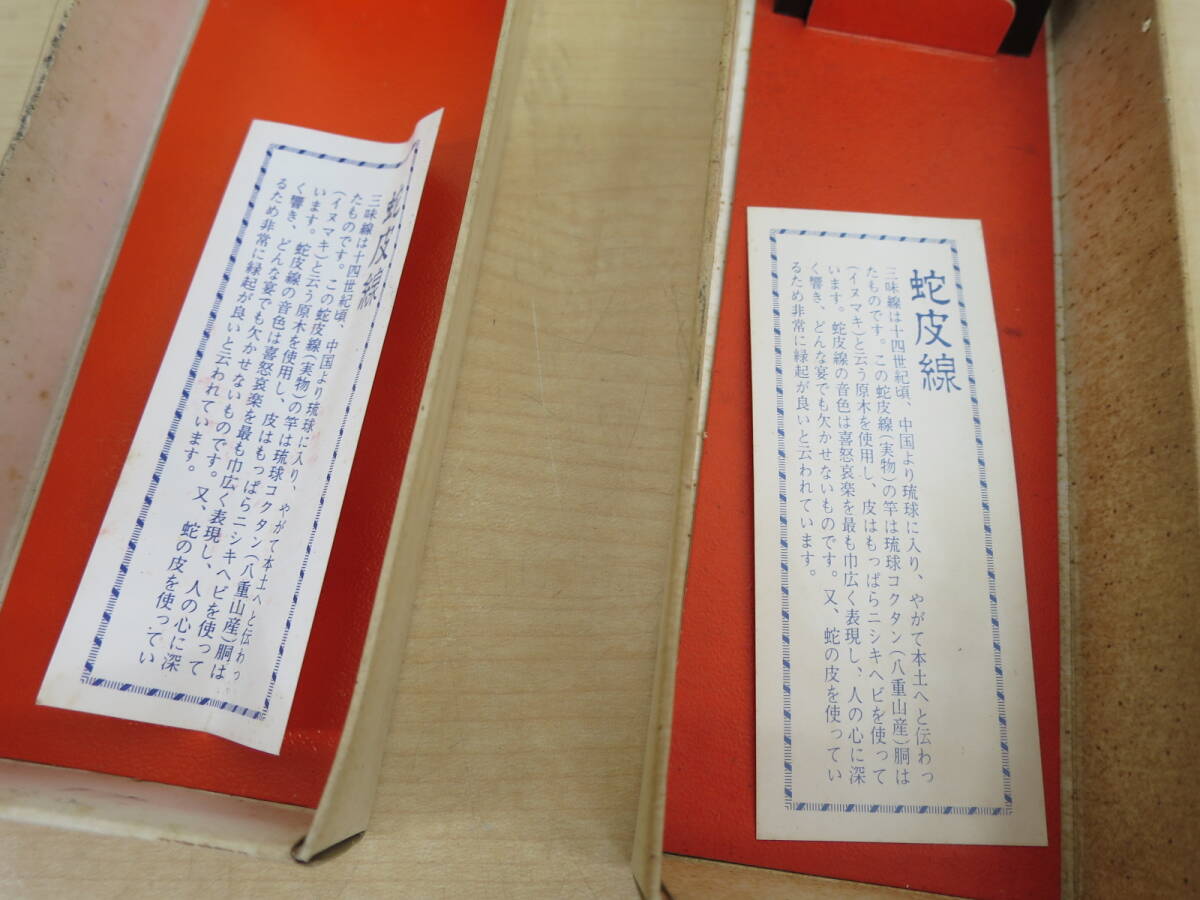 蛇皮線
三味線は十四世紀頃、中国より琉球に入り、やがて本土へと伝わっ
たものです。この蛇皮線(実物)の竿は琉球コクタン(八重山産)胴は
(イヌマキ)と云う原木を使用し、皮はもっぱらニシキヘビを使って
います。蛇皮線の音色は喜怒哀楽を最も巾広く表現し、人の心に深
く響き、どんな宴でも欠かせないものです。又、蛇の皮を使ってい
るため非常に縁起が良いと云われています。
蛇皮線
三味線は十四世紀頃、中国より琉球に入り、やがて本土へと伝わっ
たものです。この蛇皮線(実物)の竿は琉球コクタン(八重山産)胴は
(イヌマキ)と云う原木を使用し、皮はもっぱらニシキヘビを使って
います。蛇皮線の音色は喜怒哀楽を最も巾広く表現し、人の心に深
く響き、どんな宴でも欠かせないものです。又、蛇の皮を使ってい
るため非常に縁起が良いと云われています。